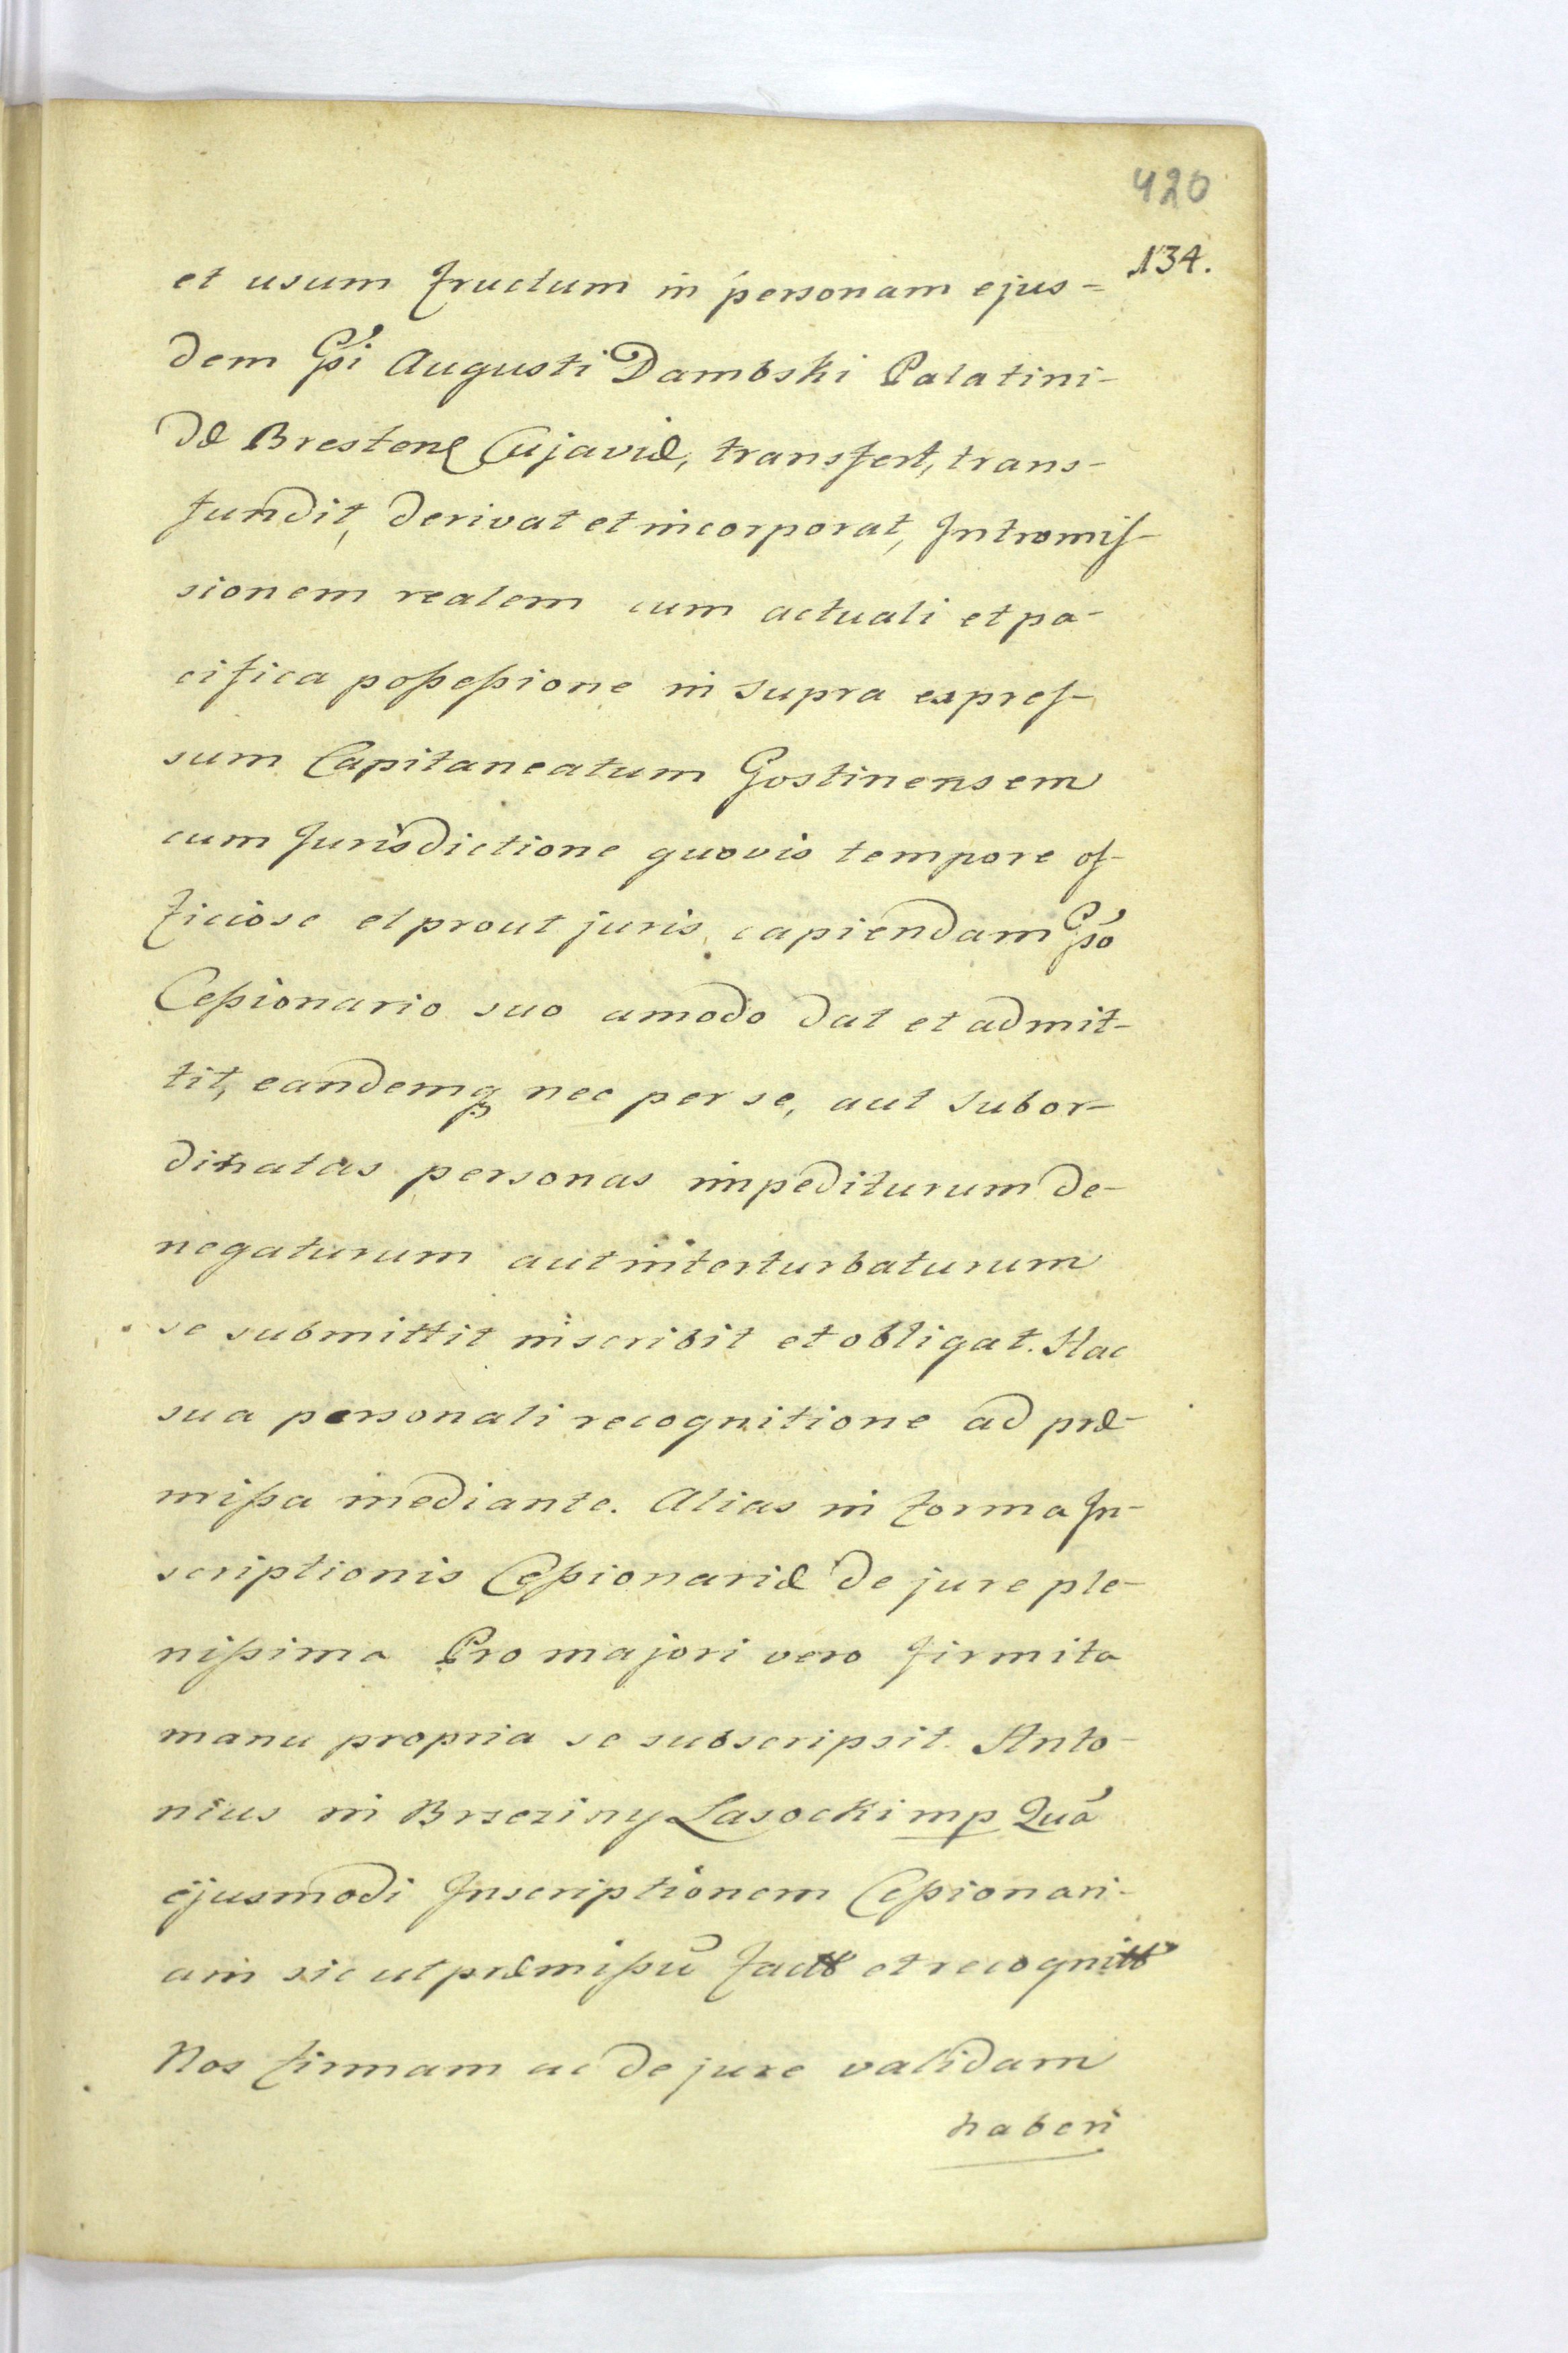 420
134.
et usum fructum in personam ejus=
dem Gsi Augusti Dambski Palatini-
dæ Brestens Cujaviæ, transfert, trans-
fundit, derivat et incorporat, Intromis-
sionem realem cum actuali et pa-
cifica poßeßione in supra expres-
sum Capitaneatum Gostinensem
cum Jurisdictione quovis tempore of-
ficiose et prout juris capiendam Gso
Ceßionario suo amodo dat et admit-
tit, eandemq nec per se, aut subor-
dinatas personas impediturum de-
negaturum aut interturbaturum
se submittit inscribit et obligat. Hac
sua personali recognitione ad præ-
mißa mediante. Alias in forma In-
scriptionis Ceßionariæ de jure ple-
nißima Pro majori vero firmita
manu propria se subscripsit. Anto-
nius in Brzeziny Lasocki mp Quá
ejusmodi Inscriptionem Ceßionari-
am sic ut præmißũ fact et recognit
Nos firmam ac de jure validam
haberi